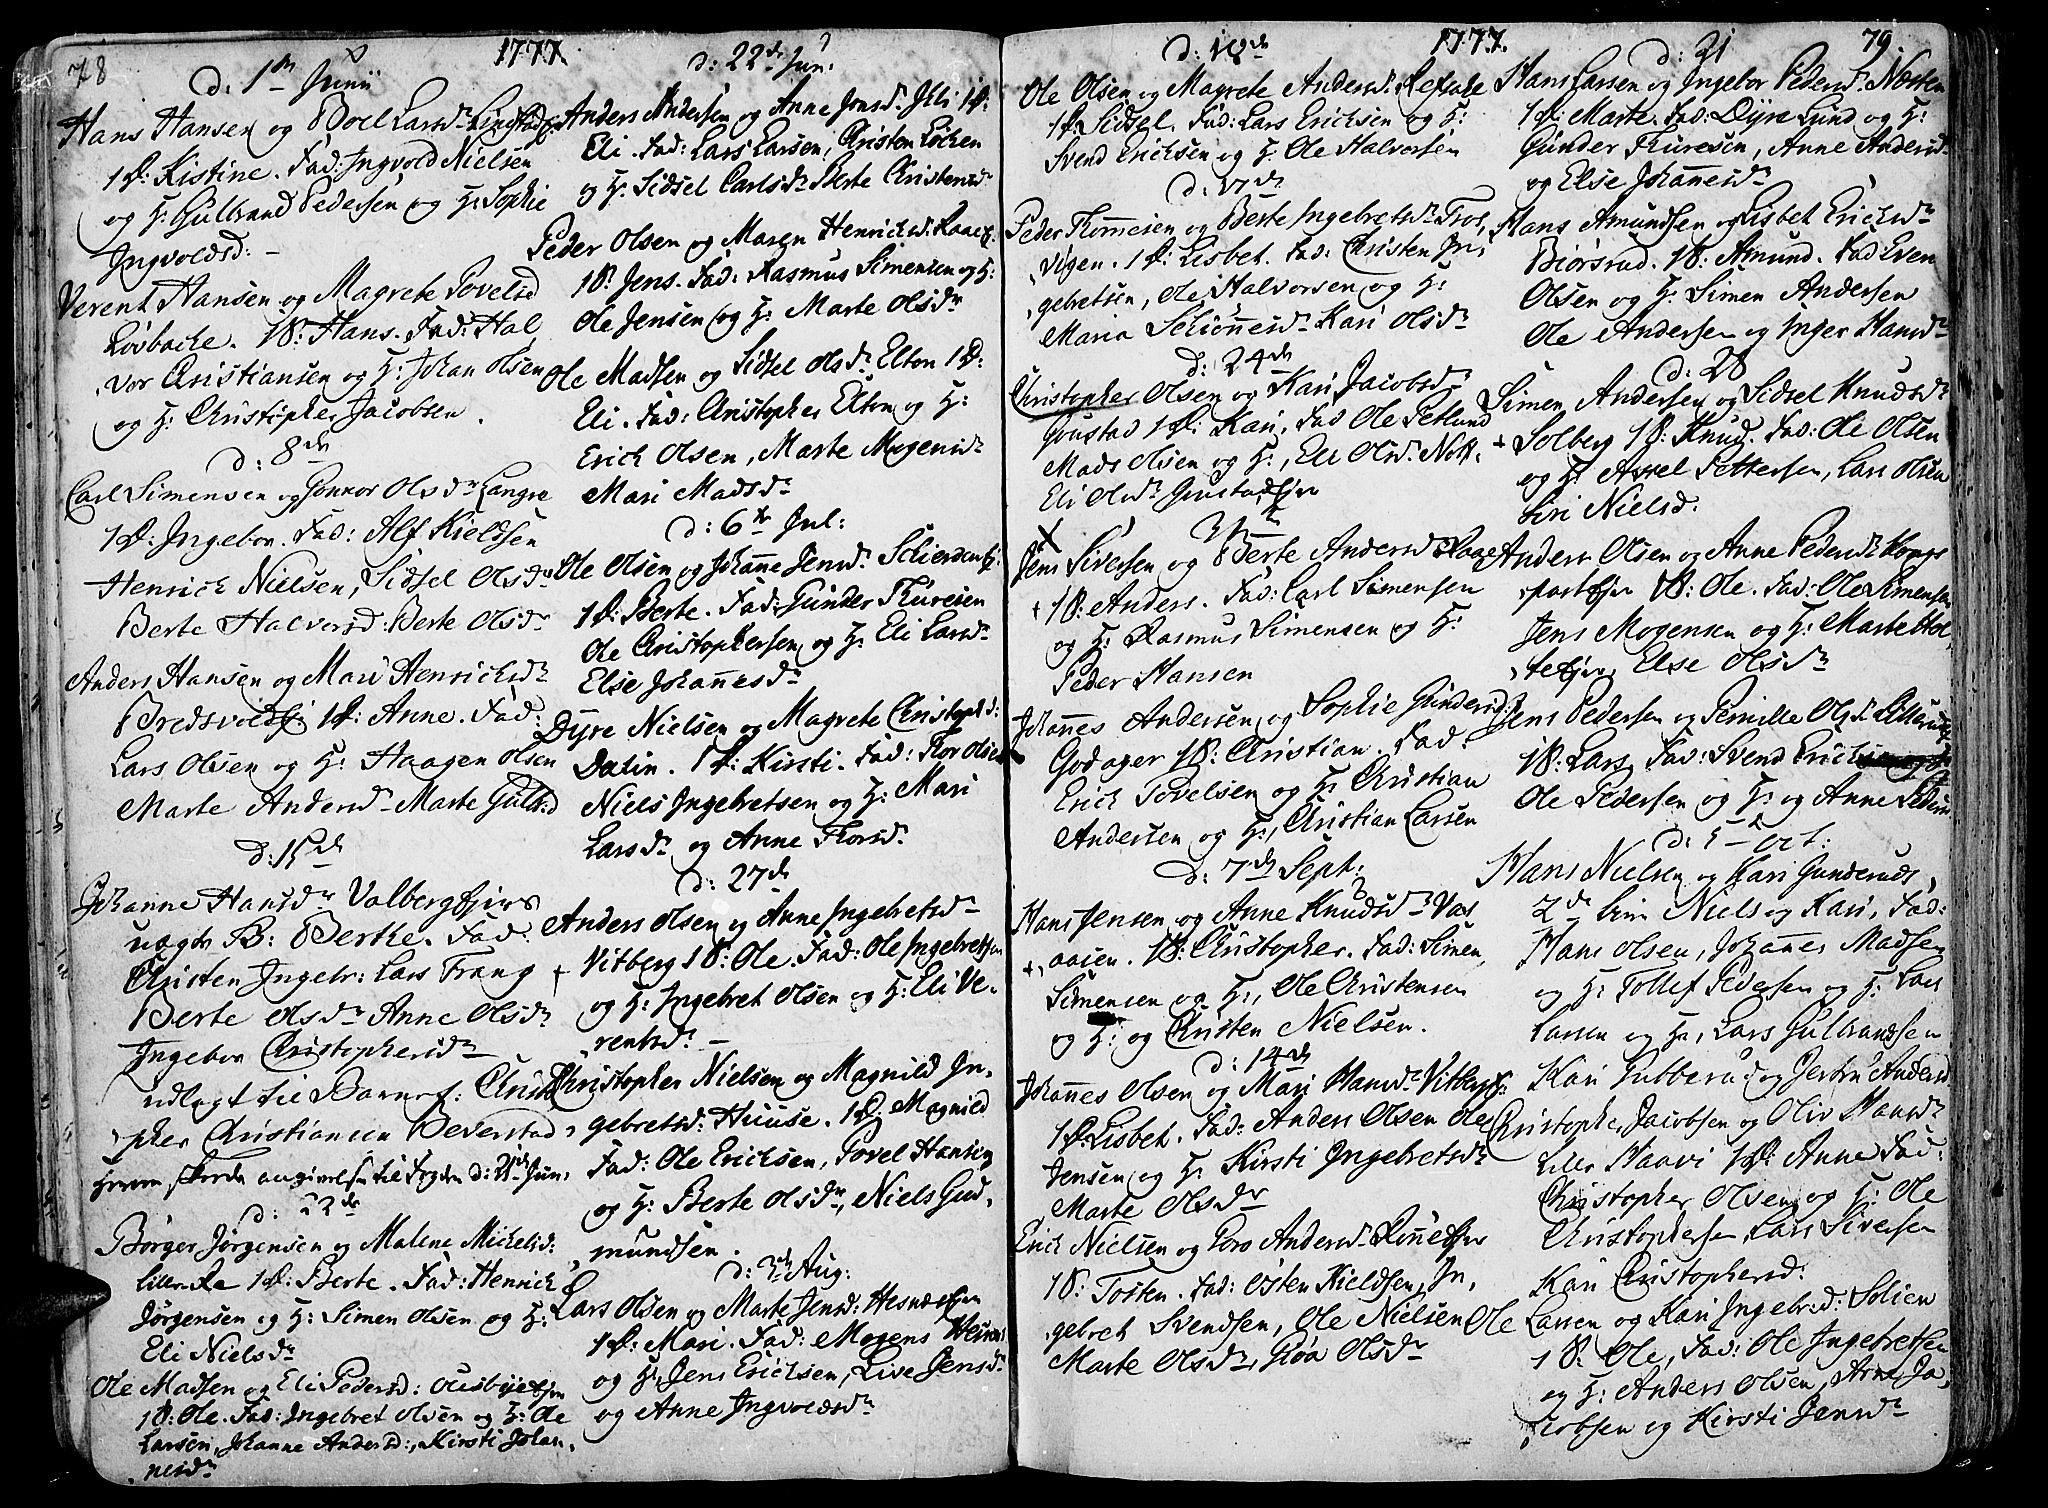 78
1777
d: 1ste Junii
Hans Hansen og Boel Larsdr
1 D: Kistine. Fad: Ingvold Nielsen
og H: Gulbrand Pedersen og H: Sophie
Ingvoldsd: -
Verent Hansen og Magrete Povelsd
Løvbacke. 1 S: Hans. Fad: Hal
vor Christiansen og H: Johan Olsen
og H: Christopher Jacobsen.
d: 8de
Carl Simensen og Gonnor Olsdr Langre
1 D: Ingebor. Fad: Alf Kieldsen
Henrich Nielsen, Sidsel Olsdr
Berte Halversd: Berte Olsdr
Anders Hansen og Mari Henrichsdr
1 D: Anne. Fad:
Lars Olsen og H: Haagen Olsen
Marte Andersdr Marte Gulsd
d: 15de
Johanne Hansdr Valberg Ejers
uægte B: Berthe. Fad:
Christen Ingebr: Lars Frang
Berte Olsdr Anne Olsdr
Ingebor Christophersdr
udlagt til Barnef: Christo
pher Christiansen Bederstad
skrede angivelse til Fogden d: 21de Jun,
d: 22de
Børger Jørgensen og Malene Michelsd:
Lille Re 1 D: Berte. Fad: Henrich
Jørgensen og H: Simen Olsen og H:
Eli Nielsdr
Ole Madsen og Eli Pedersd:
1 S: Ole. Fad: Ingebret Olsen og H: Ole
Larsen, Johanne Andersd:, Kirsti Johan,
nesdr
d: 22de Jun:
Anders Andersen og Anne Jonsd. 1 D:
Eli. Fad: Lars Larsen, Christen Løcken
og H: Sidsel Carlsdr Berte Christensdr
Peder Olsen og Maren Henrichsd:
1 S: Jens. Fad: Rasmus Simensen og H:
Ole Jensen og H: Marte Olsdr
Ole Madsen og Sidsel Olsdr Elton 1 D:
Eli. Fad: Christopher Elton og H:
Erich Olsen, Marte Mogensdr
Mari Madsdr
d: 6te Jul:
Ole Olsen og Johanne Jensd.
1 D: Berte. Fad: Gunder Thuresen
Ole Christophersen og H: Eli Larsdr
Else Johannesdr
Dyre Nielsen og Magrete Christophd:
Dalin. 1 D: Kirsti. Fad: Thor Olsen
Niels Ingebretsen og H: Mari
Larsdr og Anne Thorsdr
d: 27de
Anders Olsen og Anne Ingebretsdr
+ Vitberg 1 S: Ole. Fad: Ole Ingebretsen
og H: Ingebret Olsen og H: Eli Ve-
rentsdr -
Christopher Nielsen og Magnild In,
gebretsd: Huuse. 1 D: Magnild
Fad: Ole Erichsen, Povel Hansen
og H: Berte Olsdr, Niels Gud,
mundsen.
d: 3de Aug:
Lars Olsen og Marte Jensd: Hesnes Ejer
1 D: Mari. Fad: Mogens Hesnes
og H: Jens Erichsen, Live Jensdr
og Anne Ingvoldsdr
1777.
79.
d: 10de
Ole Olsen og Magrete Andersd: Refsale
1 D: Sidsel. Fad: Lars Erichsen og H:
Svend Erichsen og H: Ole Halvorsen
d: 17de
Peder Thommesen og Berte Ingebretsdr Tros,
vigen. 1 D: Lisbet. Fad: Christen In,
gebretsen, Ole Halvorsen og H:
Maria Schiønnesdr Kari Olsdr
d: 24de
Christopher Olsen og Kari Jacobsdr
Gaustad 1 D: Kari, Fad Ole Petlund
Mads Olsen og H:, Eli Olsd.
Eli Olsdr Gaustad Ejer
31te
X
Jens Sivertsen og Berte Andersd
+ 1 S: Anders. Fad: Carl Simensen
og H: Rasmus Simensen og H:
Peder Hansen
Johannes Andersen og Sophie Gundersd:
Godager 1 S: Christian. Fad:
Erich Povelsen og H: Christian
Andersen og H:, Christian Larsen
d: 7de Sept:
Hans Jensen og Anne Knudsdr Vas
+ aasen. 1 S: Christopher. Fad: Simen
Simensen og H:, Ole Christensen
og H: og Christen Nielsen.
d: 14de
Johannes Olsen og Mari Hansdr Vitberg
1 D: Lisbet. Fad: Anders Olsen Ole
Jensen og H: Kirsti Ingebretsdr
Marte Olsdr
Erich Nielsen og Goro Andersd. Rønne Ejer
1 S: Tosten. Fad: Osten Kieldsen, In,
gebret Svendsen, Ole Nielsen
Marte Olsdr, Goa Olsdr
d: 21
Hans Larsen og Ingebor Pedersdr Nosten
1 D: Marte. Fad: Dyre Lund og H:
Gunder Thuresen, Anne Andersdr
og Else Johannesdr
Hans Amundsen og Lisbet Erichsdr
Biørsrud. 1 S: Amund. Fad Even
Olsen og H: Simen Andersen
Ole Andersen og Inger Hansdr
d: 28
Simen Andersen og Sidsel Knudsdr
+ Solberg 1 S: Knud. Fad: Ole Olsen
og H: Axel Pettersen, Lars Olsen
Siri Nielsd.
Anders Olsen og Anne Pedersdr Kongs
parten Ejer 1 S: Ole. Fad: Ole Simensen
Jens Mogensen og H: Marte
Else Olsdr
Jens Pedersen og Pernille Olsdr
1 S: Lars, Fad: Svend Erichsen
Ole Pedersen og H: og Anne Pedersdr
d: 5te Oct:
Hans Nielsen og Kari Gunderuds,
2de Niels og Kari, Fad:
Hans Olsen, Johannes Madsen
og H: Tollef Pedersen og H: Lars
Larsen og H:, Lars Gulbrandsen
Kari Tubberud og Andersd
Christopher Jacobsen og Oliv Hansdr
Lille Haavi 1 D: Anne Fad:
Christopher Olsen og H: Ole
Christophersen, Lars Sivertsen
Kari Christophersd:
Ole Larsen og Kari Ingebrd: Solien
1 S: Ole, Fad: Ole Ingebretsen
og H: Anders Olsen, Arne Ja,
cobsen og Kirsti Jensdr